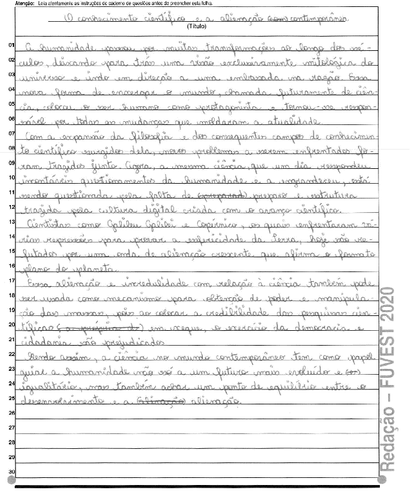 Atenção: Leia atentamente as instruções do caderno de questões antes de preencher esta folha.
O conhecimento científico e a alienação contemporânea
(Título)
01 A humanidade passou por muitas transformações ao longo dos sé-
02 culos, deixando para trás uma visão exclusivamente mitológica do
03 universo e indo em direção a uma embasada na razão. Essa
04 nova forma de enxergar o mundo, chamada futuramente de ciên-
05 cia, colocou o ser humano como protagonista e tornou-se respon-
06 sável por todas as mudanças que moldaram a atualidade.
07 Com a expansão da filosofia e dos consequentes campos de conhecimen-
08 to científico surgidos dela, novos problemas a serem enfrentados fo-
09 ram trazidos junto. Agora, a mesma ciência que um dia respondeu
10 inúmeros questionamentos da humanidade e a engrandeceu, está
11 sendo questionada pela falta de preparo e estrutura
12 trazida pela cultura digital criada com o avanço científico.
13 Cientistas como Galileu Galilei e Copérnico, os quais enfrentaram vá-
14 rias repressões para provar a esfericidade da Terra, hoje são re-
15 futados por uma onda de alienação crescente que afirma o formato
16 plano do planeta.
17 Essa alienação e incredulidade com relação à ciência também pode
18 ser usada como mecanismo para obtenção de poder e manipula-
19 ção das massas, pois ao colocar a credibilidade das pesquisas cien-
20 tíficas em xeque, o exercício da democracia e
21 cidadania são prejudicados.
22 Sendo assim, a ciência no mundo contemporâneo tem como papel
23 guiar a humanidade não só a um futuro mais evoluído e
24 igualitário, mas também achar um ponto de equilíbrio entre o
25 desenvolvimento e a alienação.
26
27
28
29
30
Redação – FUVEST 2020